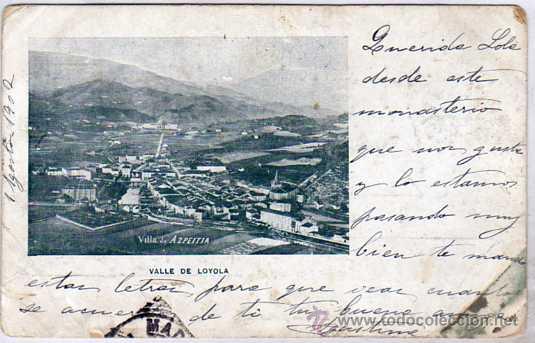 Querida Lola
desde este
monasterio
que nos gusta
y lo estamos
pasando muy
bien te mando
estas letras para que veas cuanto
se acuerda de ti tu buena amiga
1 Agosto 1902
Villa de AZPEITIA
VALLE DE LOYOLA
MA
www.todocoleccion.net